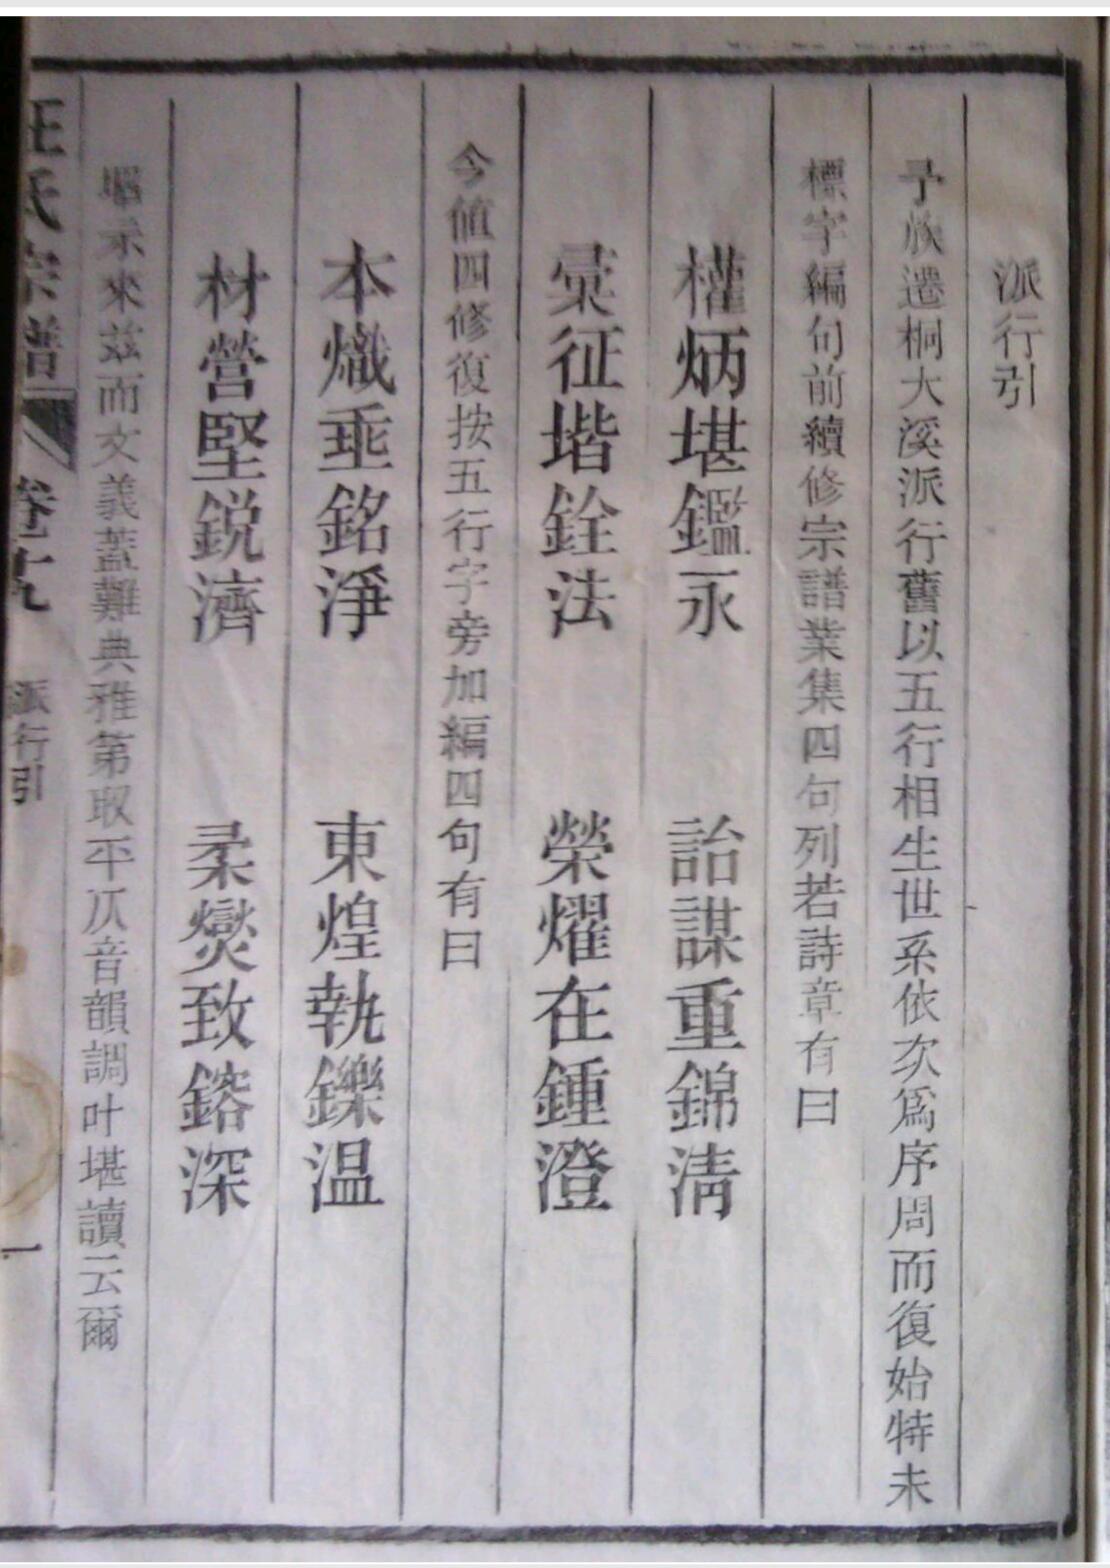 派行引
予族遷桐大溪派行舊以五行相生世系依次爲序周而復始特未
標字編句前續修宗譜業集四句列若詩章有曰
權炳堪鑑永　詒謀重錦清
彙征堦銓法　榮燿在鍾澄
今値四修復按五行字旁加編四句有曰
本熾垂銘淨　東煌執鑠温
材營堅鋭濟　柔爕致鎔深
示來兹而文義蓋難典雅第取平仄音韻調叶堪讀云爾
汪氏宗譜　卷十九　派行引　一